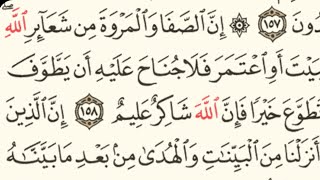 دُونَ ١٥٧ ۞ إِنَّ ٱلصَّفَا وَٱلْمَرْوَةَ مِن شَعَآئِرِ ٱللَّهِ
بَيْتَ أَوِ ٱعْتَمَرَ فَلَا جُنَاحَ عَلَيْهِ أَن يَطَّوَّفَ
طَوَّعَ خَيْرًا فَإِنَّ ٱللَّهَ شَاكِرٌ عَلِيمٌ ١٥٨ إِنَّ ٱلَّذِينَ
أَنزَلْنَا مِنَ ٱلْبَيِّنَٰتِ وَٱلْهُدَىٰ مِنۢ بَعْدِ مَا بَيَّنَّٰهُ